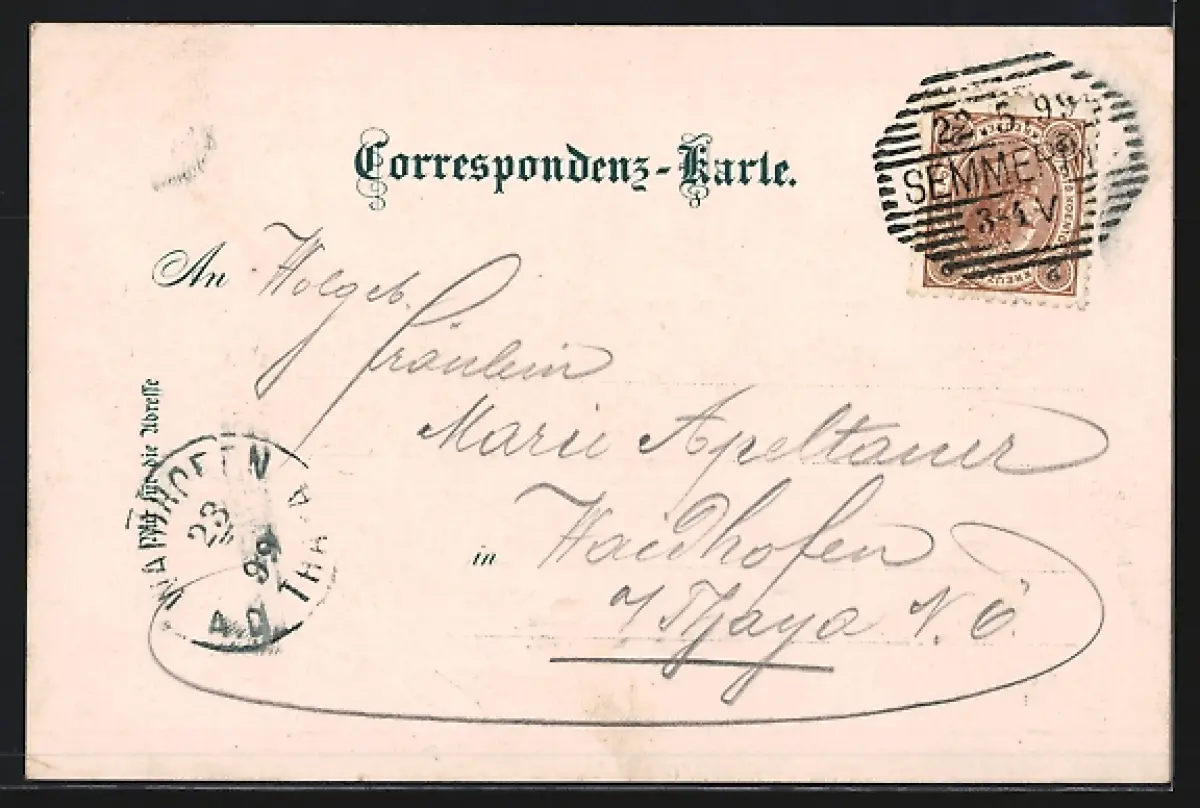 Correspondenz-Karte.
22 5 99
SEMMER
3-4 V
2
KREUZ
2
An Wolgeb.
Fräulein
Marie Apeltauer
in Waidhofen
a/Thaya N. Ö.
Nur für die Adresse
WAIDHOFEN
23
99
A.D. THAYA